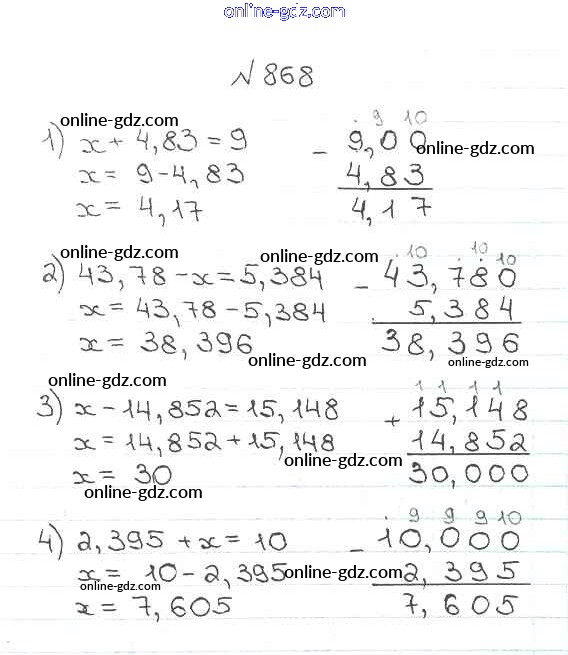 online-gdz.com
№868
online-gdz.com
1) x + 4,83 = 9
x = 9 - 4,83
x = 4,17
. 9 10
- 9,00
online-gdz.com
4,83
4,17
online-gdz.com
online-gdz.com
2) 43,78 - x = 5,384
x = 43,78 - 5,384
x = 38,396
. 10 . 10 . 10
- 43,780
5,384
38,396
online-gdz.com
online-gdz.com
3) x - 14,852 = 15,148
x = 14,852 + 15,148
x = 30
1 1 1 1
+ 15,148
14,852
30,000
online-gdz.com
online-gdz.com
4) 2,395 + x = 10
x = 10 - 2,395
x = 7,605
. 9 9 9 10
- 10,000
2,395
7,605
online-gdz.com
online-gdz.com